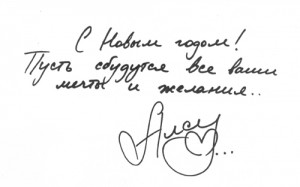 С Новым годом!
Пусть сбудутся все ваши
мечты и желания..
Алсу...